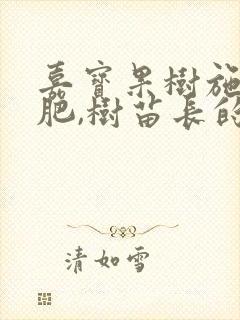 嘉寶果樹施
肥,樹苗長的
清如雪